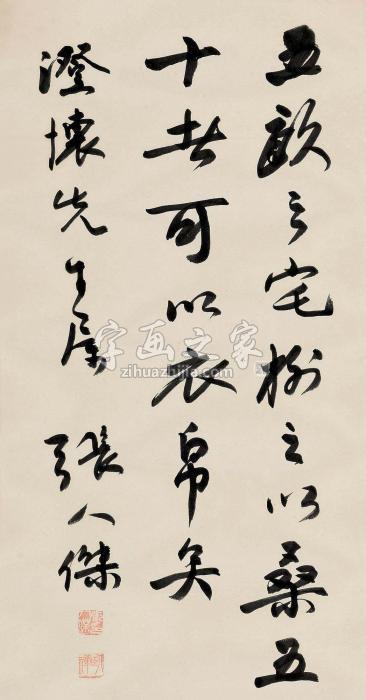 五畝之宅樹之以桑五
十者可以衣帛矣
澄懷先生属 張人傑
字画之家
www.zihuazhijia.com